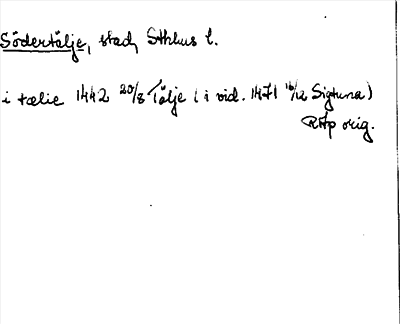 Södertälje, stad, Sthlms l.
i tælie 1442 20/8 Tälje (i vid. 1471 16/12 Sigtuna)
RAp orig.